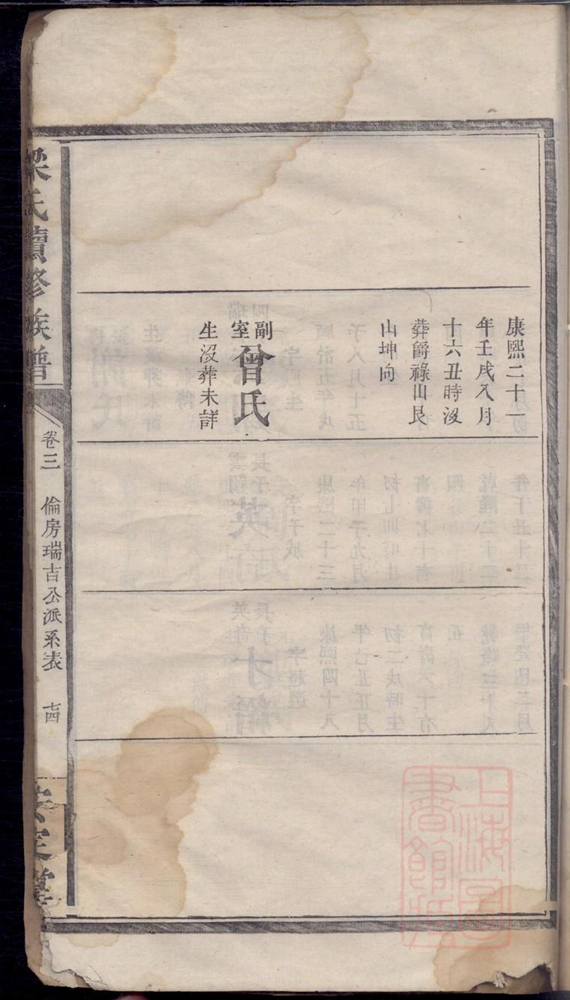 康熙二十一
年壬戌八月
十六丑時沒
葬爵祿山艮
山坤向
副室曾氏
生沒葬未詳
梁氏續修族譜
卷三
倫房瑞吉公派系表
十四
安定堂
上海圖書館藏